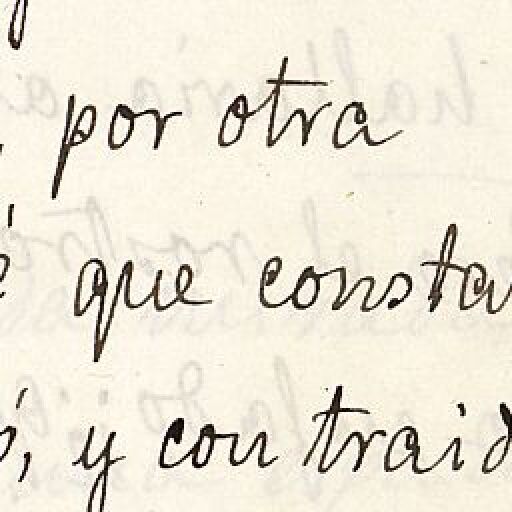 , por otra
é que consta
ó, y contraid